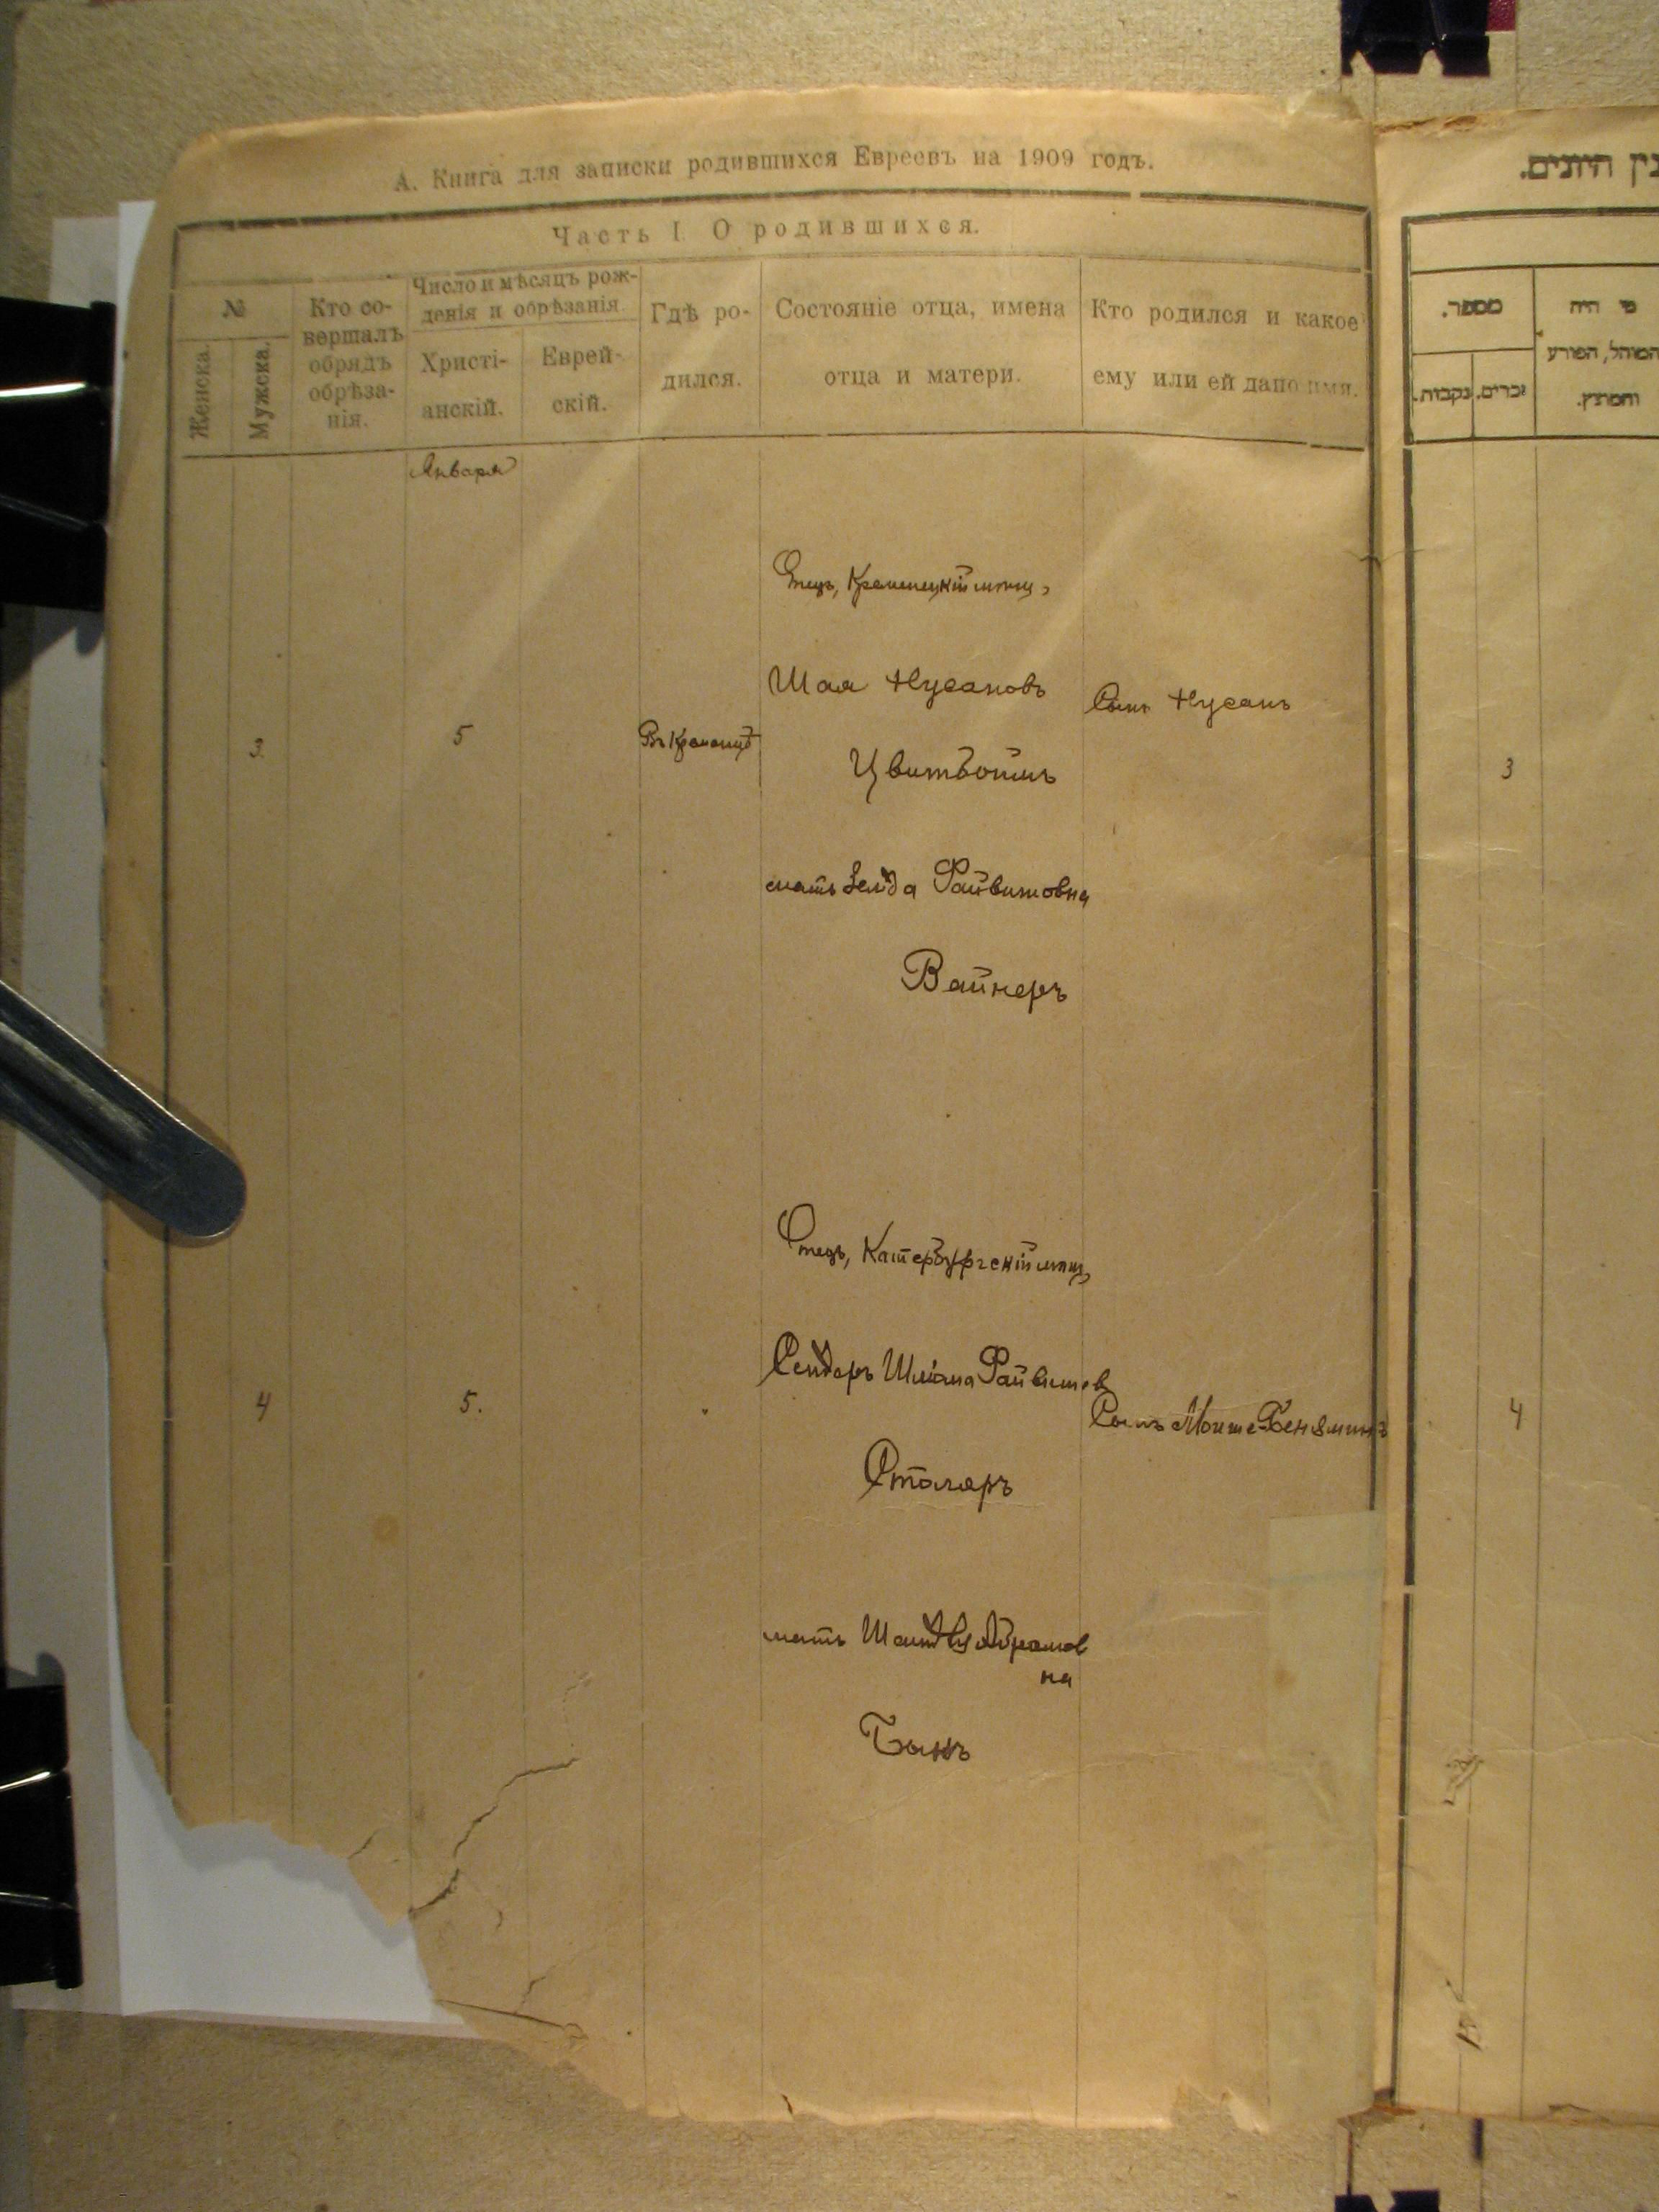 А. Книга для записки родившихся Евреевъ на 1909 годъ.
Часть I О родившихся.
№
Женска.
Мужска.
Кто со-
вершалъ
обрядъ
обрѣза-
нія.
Число и мѣсяцъ рож-
денія и обрѣзанія.
Христі-
анскій.
Еврей-
скій.
Гдѣ ро-
дился.
Состояніе отца, имена
отца и матери.
Кто родился и какое
ему или ей дано имя.
Января
3
5
Въ Кременцѣ
Отецъ, Кременецкій мѣщ,
Шая Нусановъ
Цвитбоймъ
мать Зельда Файвишовна
Вайнеръ
Сынъ Нусанъ
4
5.
"
Отецъ, Катербургскій мѣщ,
Сендеръ Шліома Файвишов
Столяръ
мать
Абрамов
на
Банъ
Сынъ Мойше-Беняминъ
היונים.
מספר.
זכרים.
נקבות.
מי היה
המוהל, הפורע
והמוצץ.
3
4